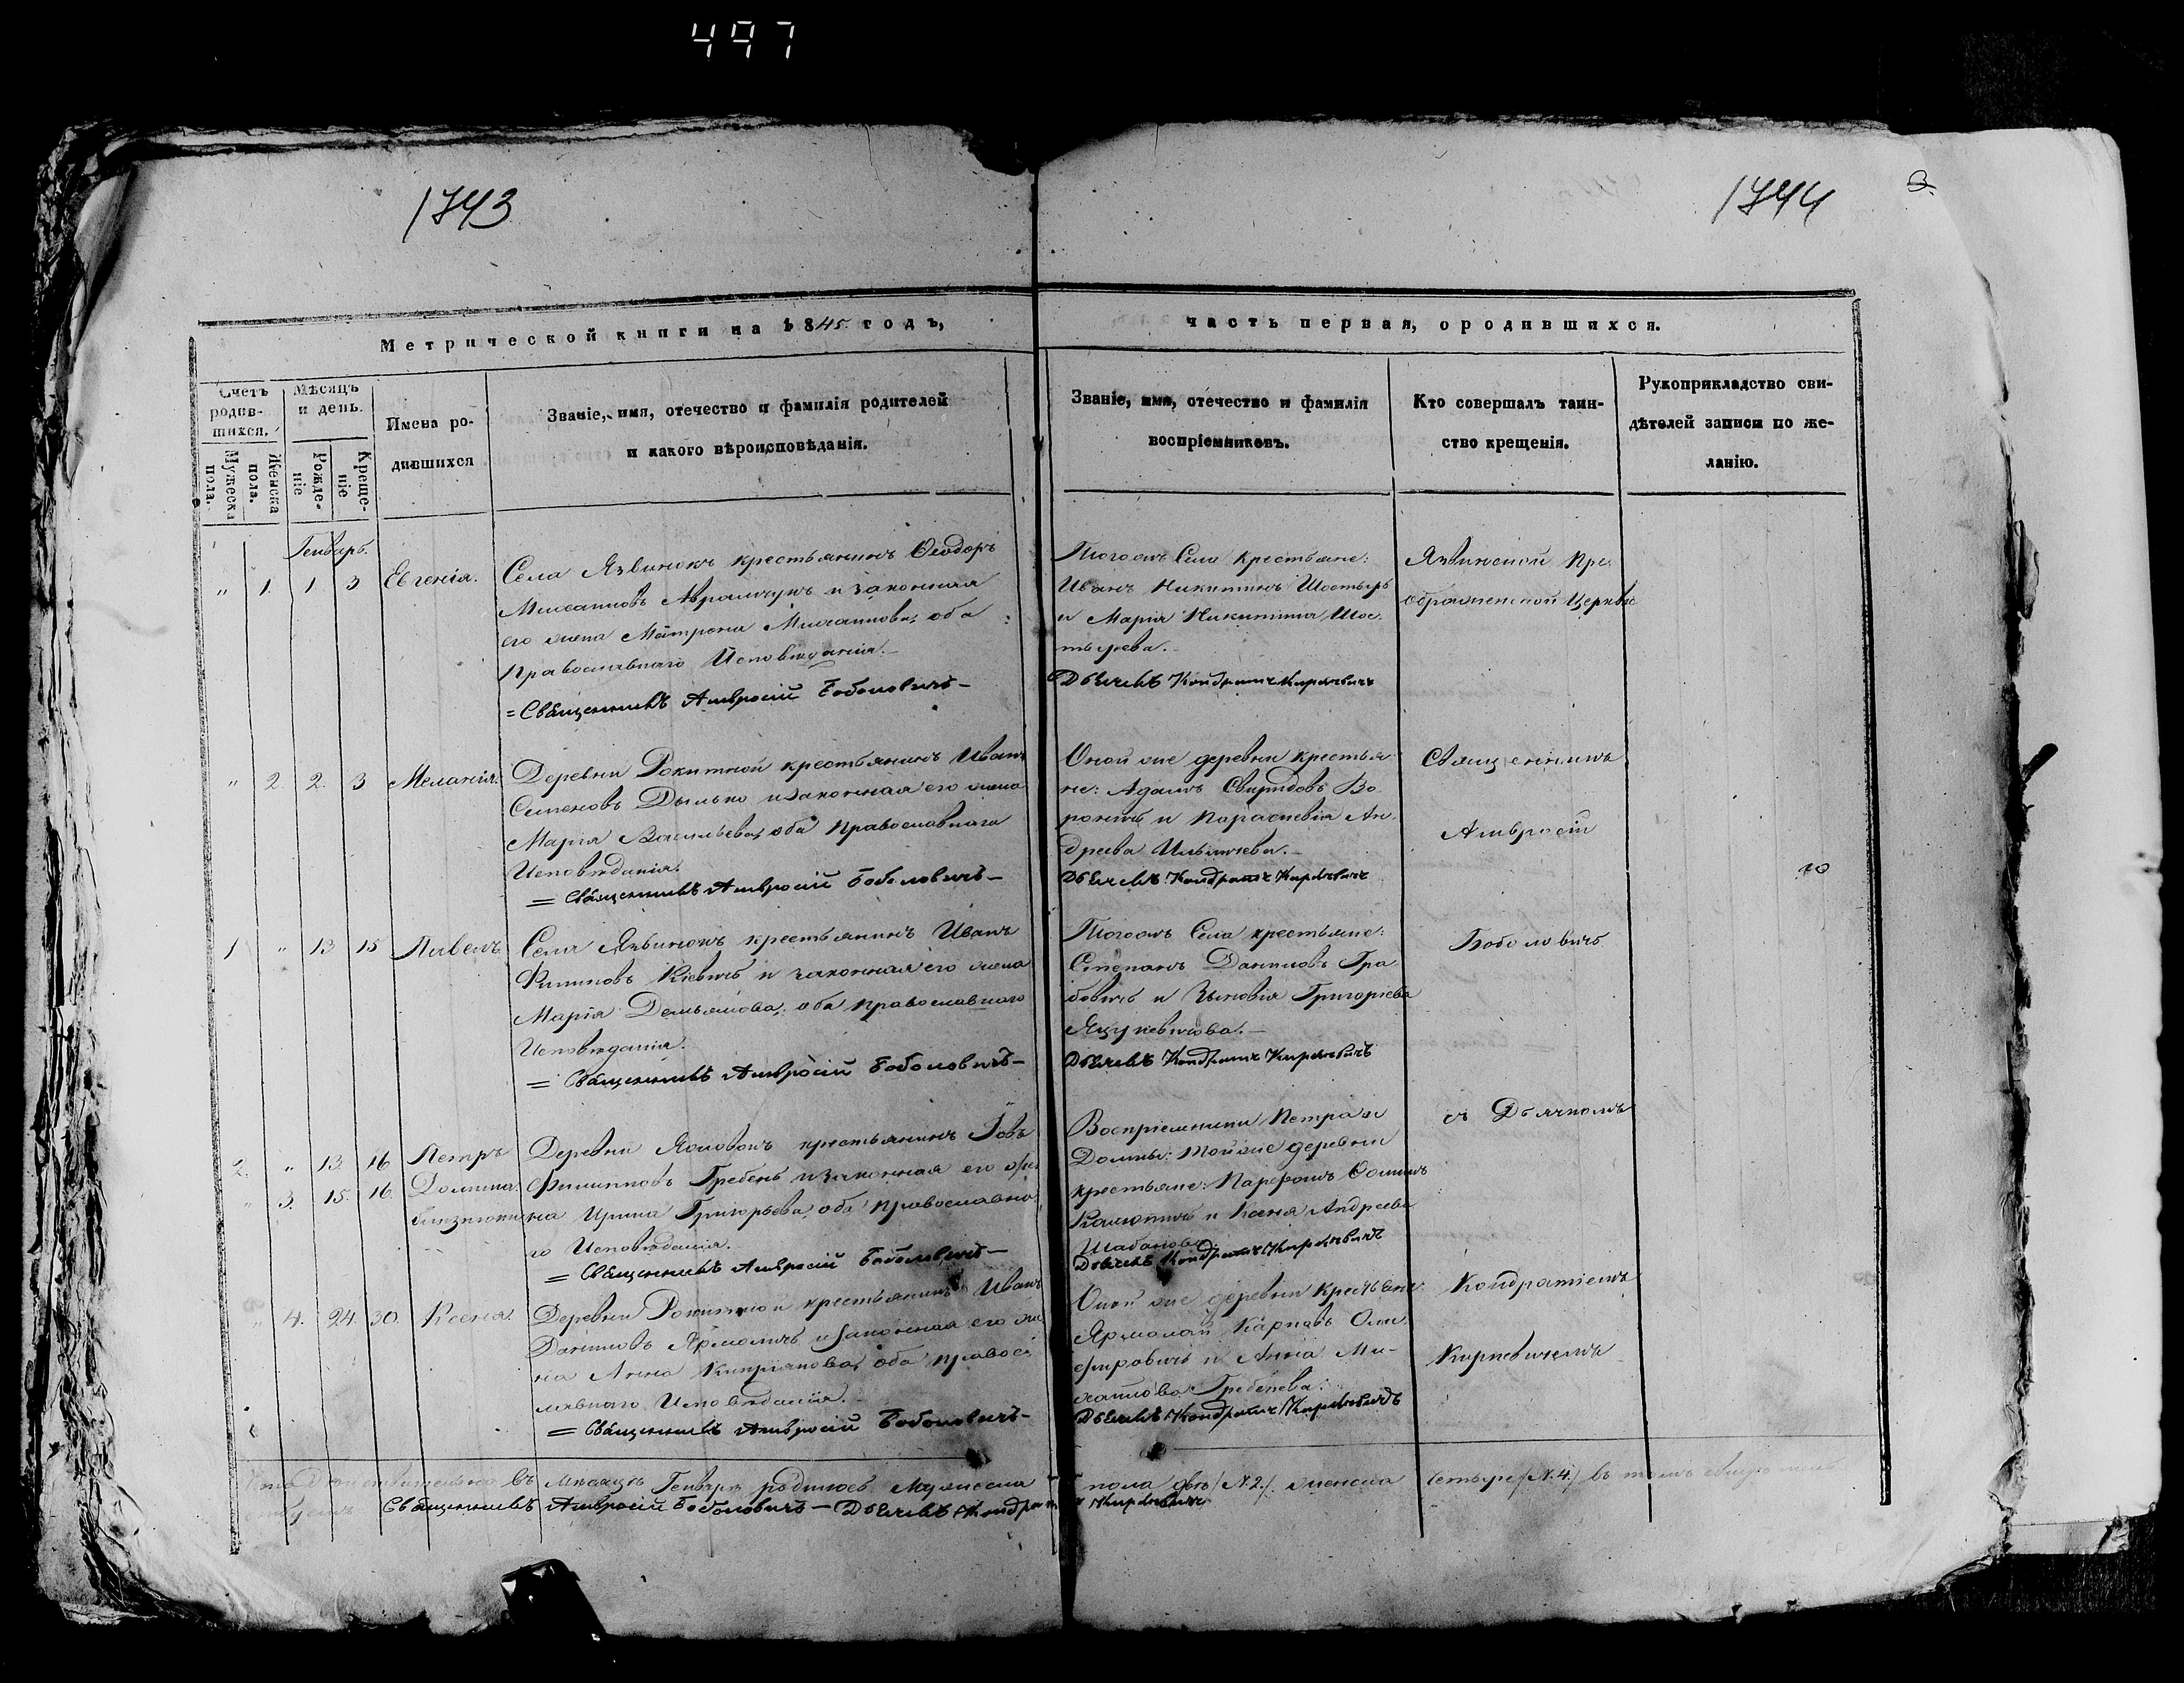 497
1743
1744
3.
Метрической книги на 1845. годъ,
часть первая, о родившихся.
Счетъ родив-шихся.
Мужеска пола.
Женска пола.
Мѣсяцъ и день.
Рожде-ніе
Креще-ніе
Имена ро-
дившихся
Званіе, имя, отечество и фамилія родителей
и какого вѣроисповѣданія.
Званіе, имя, отечество и фамилія
воспріемниковъ.
Кто совершалъ таин-
ство крещенія.
Рукоприкладство сви-
дѣтелей записи по же-
ланію.
Генварь.
" 1. 1. 3 Евгенія.
Села Язвинокъ крестьянинъ Ѳеодоръ
Михаиловъ Аврамчукъ и законная
его жена Матрона Михаилова, оба
Православнаго Исповѣданія.
= Священникъ Амвросій Боболовичъ –
Тогожъ Села крестьяне:
Иванъ Никитинъ Шостырь
и Марія Никитина Шос-
тырева.
Дьячекъ Кондратъ Киркевичъ
Язвинской Пре-
ображенской Церкви
" 2. 2. 3 Меланія.
Деревни Рокитной крестьянинъ Иванъ
Семеновъ Дылько и законная его жена
Марія Васильева, оба Православнаго
Исповѣданія.
= Священникъ Амвросій Боболовичъ –
Оной же деревни крестья-
не: Адамъ Свиридовъ Во-
и Параскевія Ан-
дреева Ильичева.
Дьячекъ Кондратъ Киркевичъ
Священникъ
Амвросій
1 " 13 15 Павелъ
Села Язвинокъ крестьянинъ Иванъ
и законная его жена
Марія Демьянова, оба православнаго
Исповѣданія.
= Священникъ Амвросій Боболовичъ –
Тогожъ Села крестьяне:
Степанъ Даниловъ Гра-
бовичъ и Зиновія Григоріева
Яцукевичова.
Дьячекъ Кондратъ Киркевичъ
Боболовичъ
2. " 13. 16 Петръ
" 3. 15. 16. Домина.
близнюки
Деревни крестьянинъ Іовъ
Филипповъ Гребень и законная его же-
на Ирина Григорьева, оба православна-
го Исповѣданія.
= Священникъ Амвросій Боболовичъ –
Воспріемники Петра и
Домны: той же деревни
крестьяне: Парфенъ Ѳоминъ
и Ксенія Андреева
Шабанова.
Дьячекъ Кондратъ Киркевичъ
съ Дьячкомъ
" 4. 24. 30. Ксенія.
Деревни Рокитной крестьянинъ Иванъ
Даниловъ Ярмоличъ и законная его же-
на Анна Кипріянова, оба правос-
лавнаго Исповѣданія.
= Священникъ Амвросій Боболовичъ –
Оной же деревни Крестьяне:
Ярмолай Карповъ Они-
сфировичъ и Анна Ми-
хайлова Гребенева.
Дьячекъ Кондратъ Киркевичъ
Кондратіемъ
Киркевичемъ
въ мѣсяцѣ Генварѣ родилось Мужеска пола два /№ 2./ женска четыре /№ 4./ въ томъ
Священникъ Амвросій Боболовичъ – Дьячекъ Кондратъ Киркевичъ